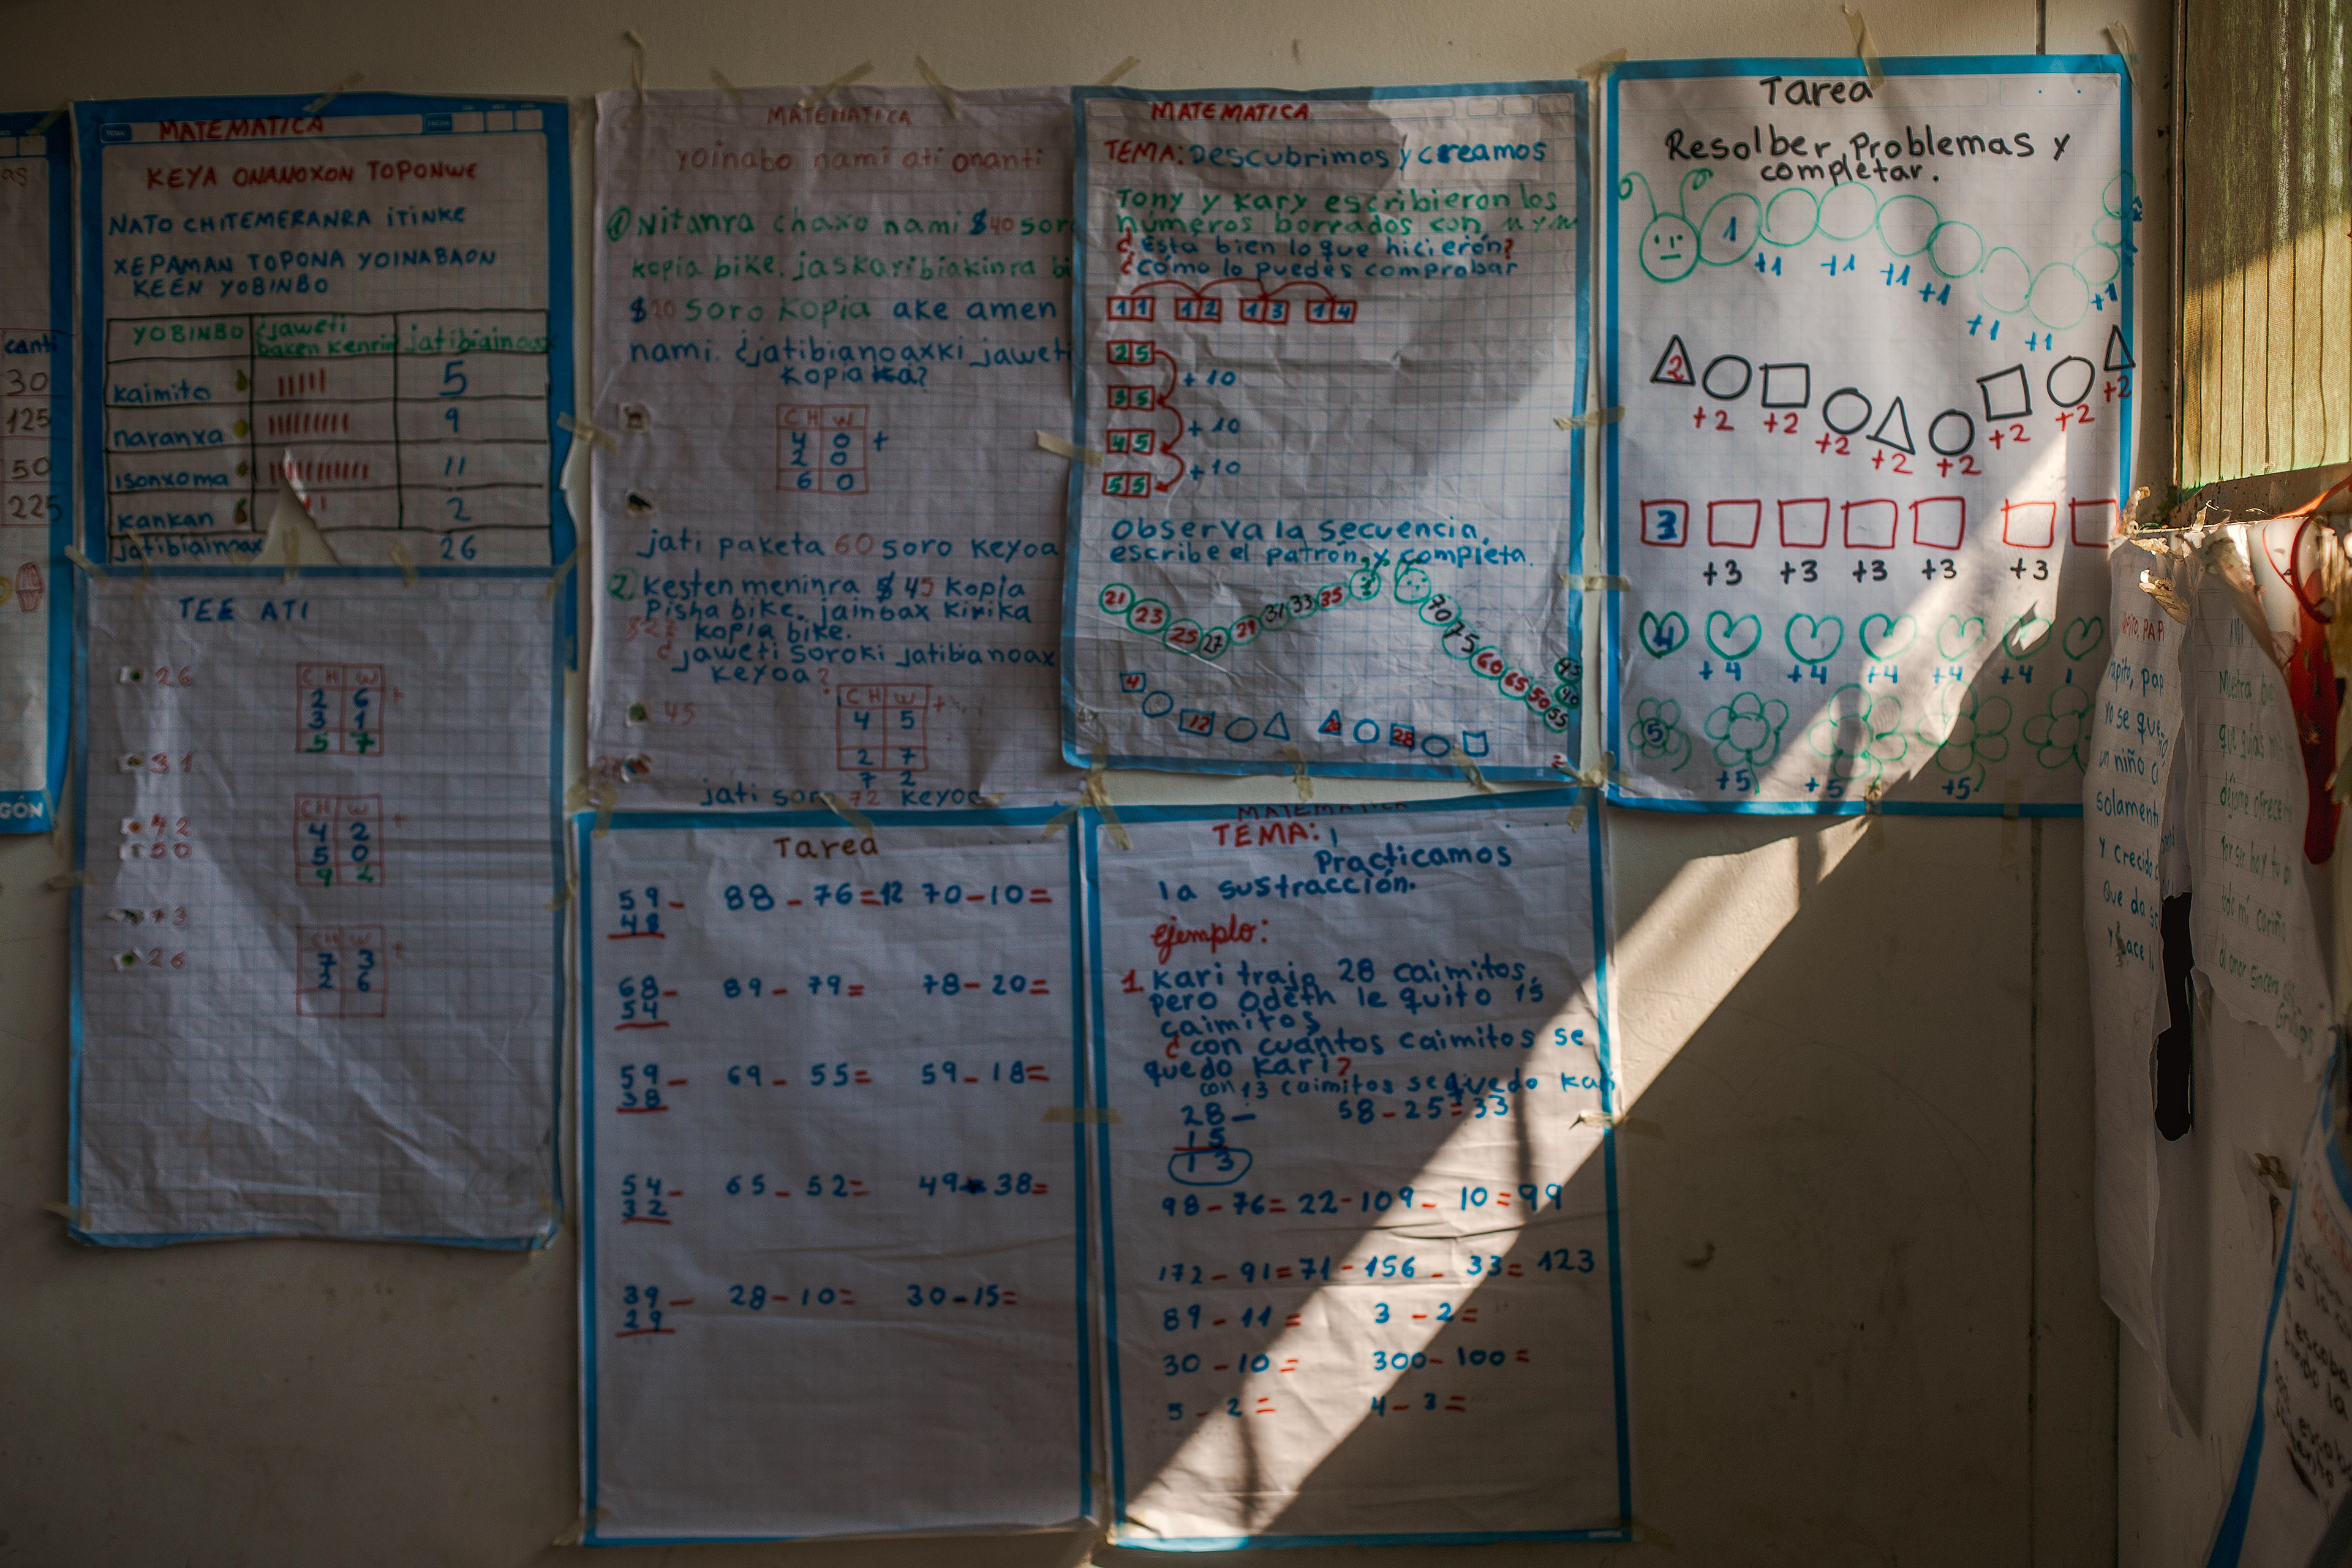 canti
30
125
50
225
GÓN
MATEMATICA
KEYA ONANOXON TOPONWE
NATO CHITEMERANRA ITINKE
XEPAMAN TOPONA YOINABAON
KEEN YOBINBO
YOBINBO ¿jaweti jatibiainoax
baken
kaimito 5
naranxa 9
isonxoma 11
kankan 2
jatibiainoax 26
TEE ATI
26
CH W
2 6 +
3 1
5 7
31
42
50
CH W
4 2 +
5 0
9 2
73
26
CH W
7 3 +
2 6
MATEMATICA
yoinabo nami ati onanti
① Nitanra chaxo nami $40 soro
kopia bike. jaskaribiakinra bi
$20 soro kopia ake amen
nami. ¿jatibianoaxki jaweti
kopia ka?
CH W
4 0 +
2 0
6 0
jati paketa 60 soro keyoa
2) Kesten meninra $45 kopia
Pisha bike. jainbax kirika
kopia bike.
¿jaweti soroki jatibianoax
keyoa?
45
CH W
4 5 +
2 7
7 2
jati soro 72 keyoa
MATEMATICA
TEMA: Descubrimos y creamos
Tony y Kary escribieron los
números borrados con
¿Esta bien lo que hicierón?
¿cómo lo puedes comprobar
11 12 13 14
25
+10
35
+10
45
+10
55
Observa la secuencia,
escribe el patrón y completa.
21 23 25 27 29 31 33 35
70 75 60 65 50 55
45
40
4
12
20 28
Tarea
Resolber Problemas y
completar.
1
+1 +1 +1 +1 +1 +1 +1
2
+2 +2 +2 +2 +2 +2 +2 +2
3
+3 +3 +3 +3 +3
4
+4 +4 +4 +4 +4
5
+5 +5 +5
Tarea
59- 88-76=12 70-10=
48
68- 89-79= 78-20=
54
59- 69-55= 59-18=
38
54- 65-52= 49-38=
32
39- 28-10= 30-15=
29
MATEMATICA
TEMA:
Practicamos
la sustracción.
ejemplo:
1. Kari trajo 28 caimitos,
pero Odeth le quito 15
caimitos
¿con cuántos caimitos se
quedo Kari?
con 13 caimitos se quedo kari
28- 58-25=33
15
13
98-76=22-109-10=99
172-91=71-156-33=123
89-11= 3-2=
30-10= 300-100=
5-2= 4-3=
yo se que
un niño
solament
y crecido
Que da